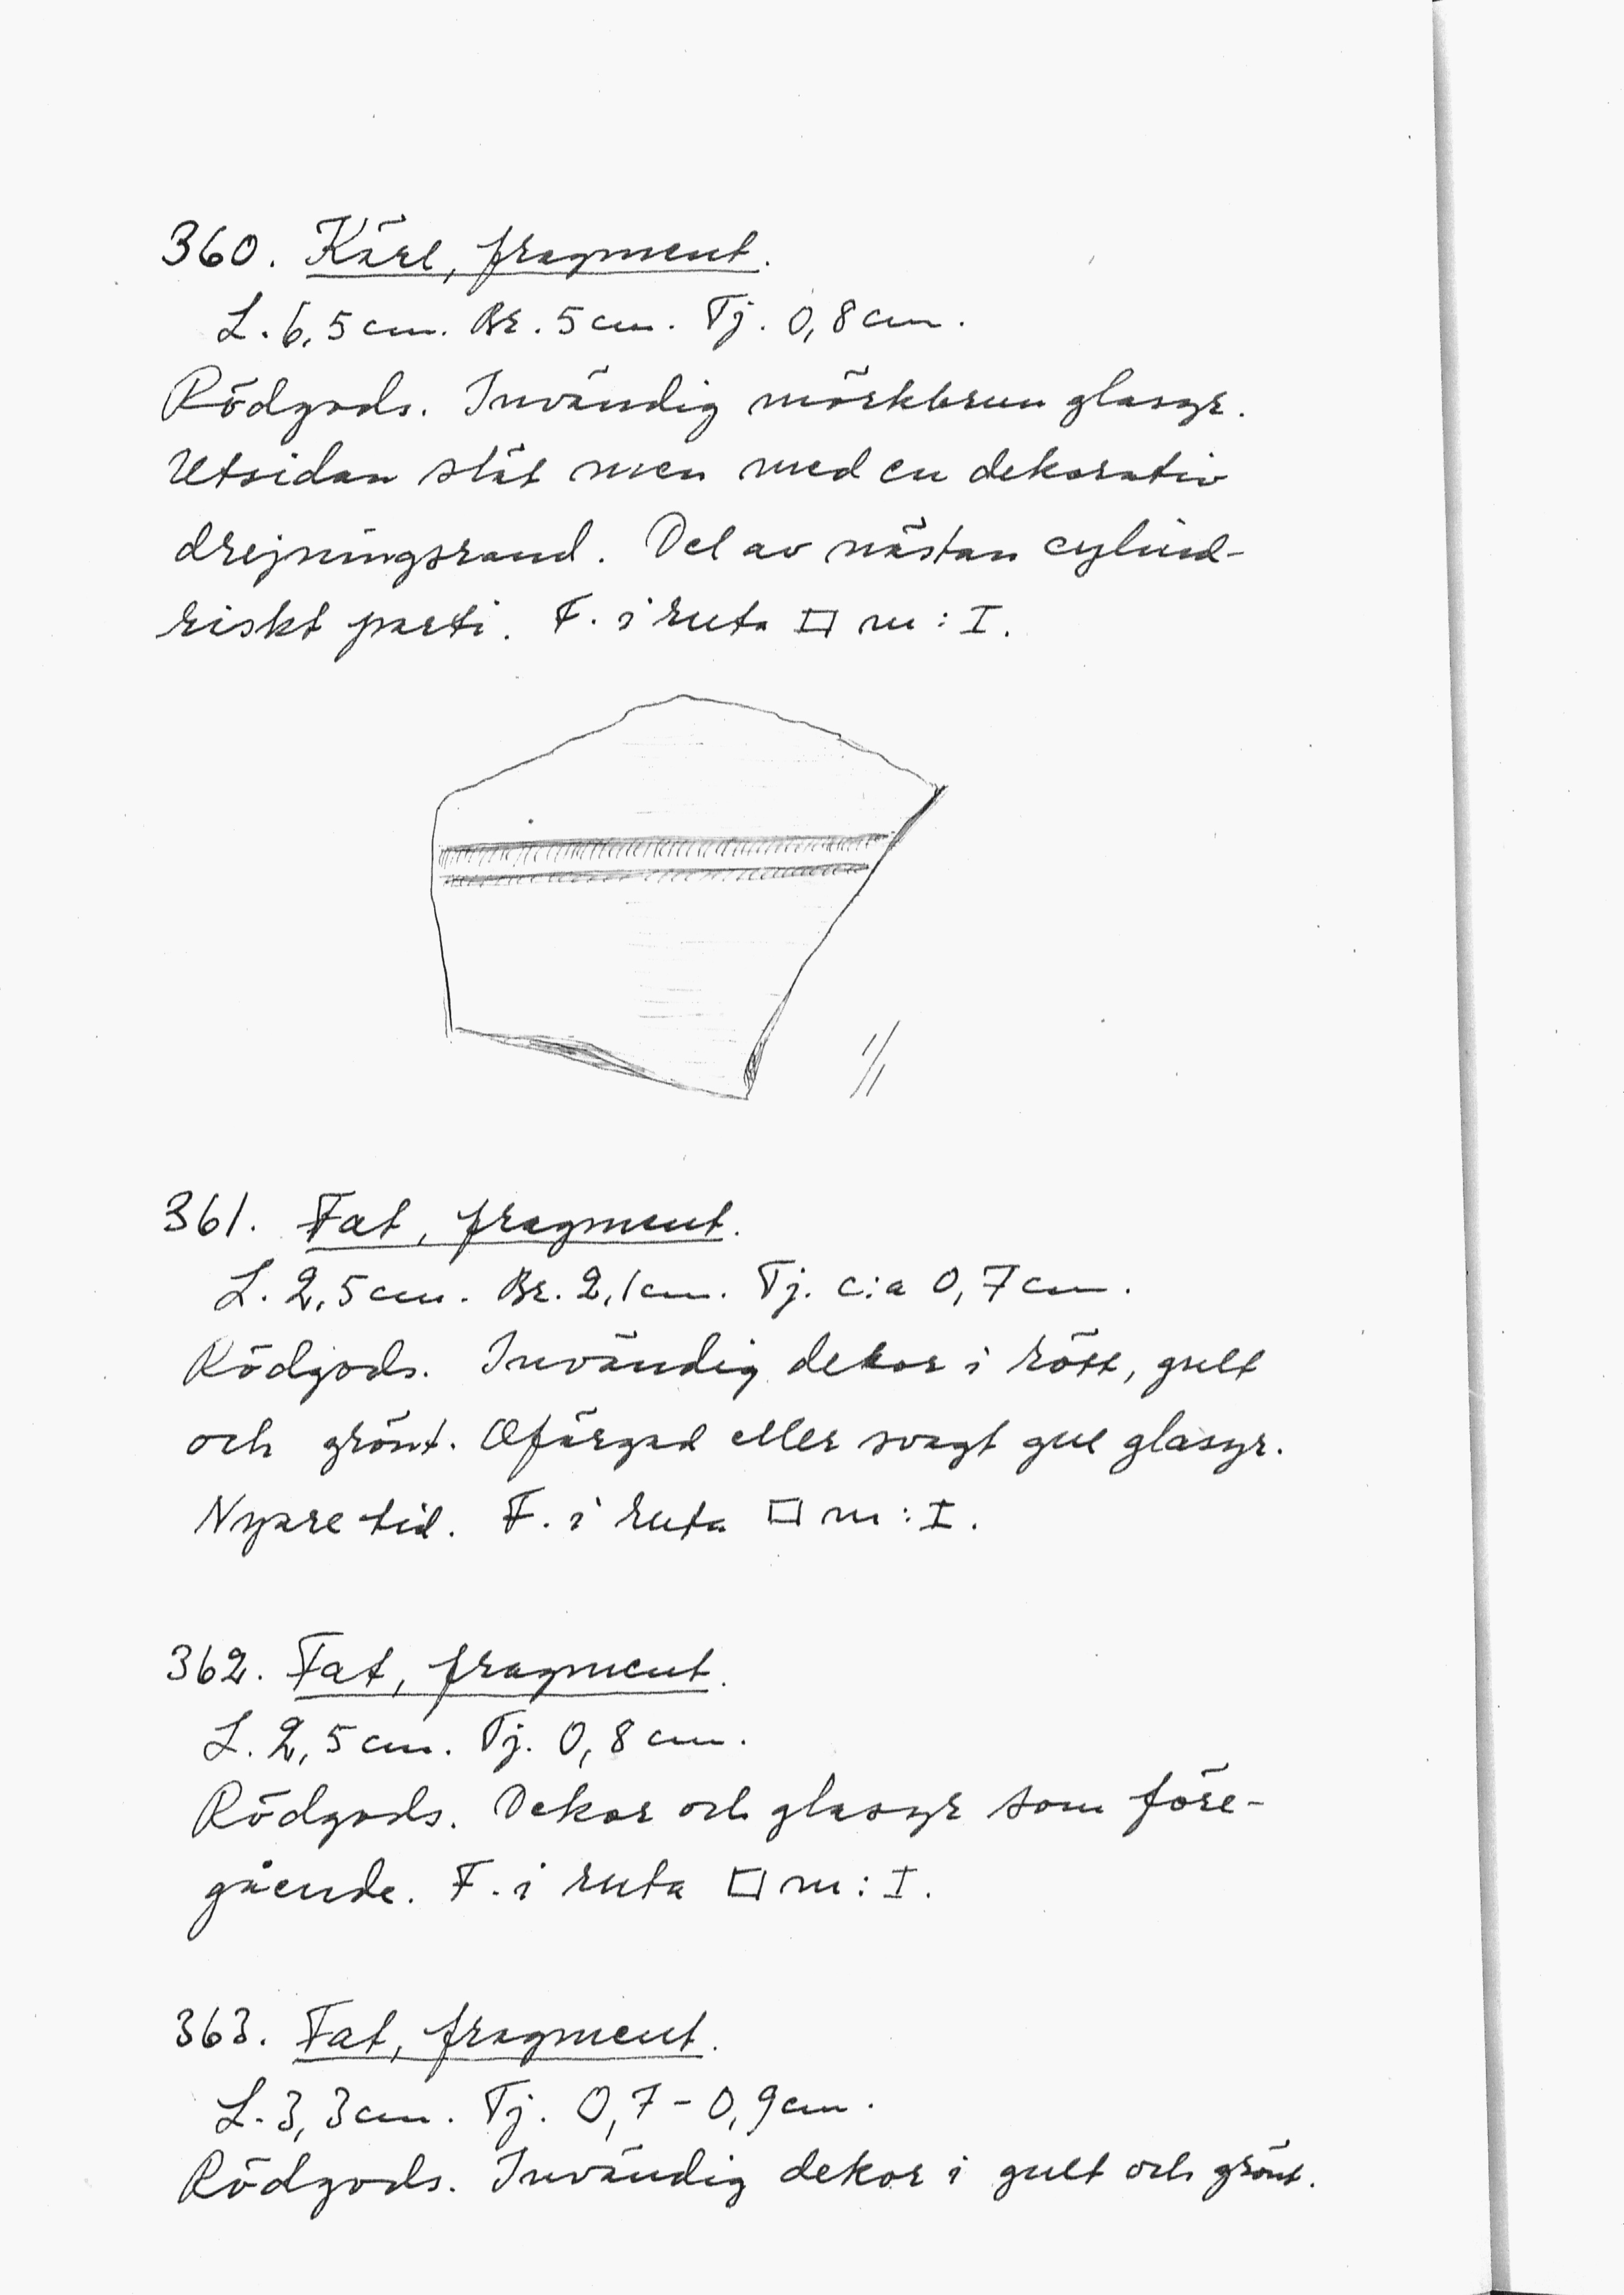 360. Kärl, fragment.
L. 6,5 cm. Br. 5 cm. Tj. 0,8 cm.
Rödgods. Invändig mörkbrun glasyr.
Utsidan slät men med en dekorativ
drejningsrand. Del av nästan cylind-
riskt parti. F. i ruta □ m : I.
1/1
361. Fat, fragment.
L. 2,5 cm. Br. 2,1 cm. Tj. c:a 0,7 cm.
Rödgods. Invändig dekor i rött, gult
och grönt. Ofärgad eller svagt gul glasyr.
Nyare tid. F. i ruta □ m : I.
362. Fat, fragment.
L. 2,5 cm. Tj. 0,8 cm.
Rödgods. Dekor och glasyr som före-
gående. F. i ruta □ m : I.
363. Fat, fragment.
L. 3,3 cm. Tj. 0,7 - 0,9 cm.
Rödgods. Invändig dekor i gult och grönt.